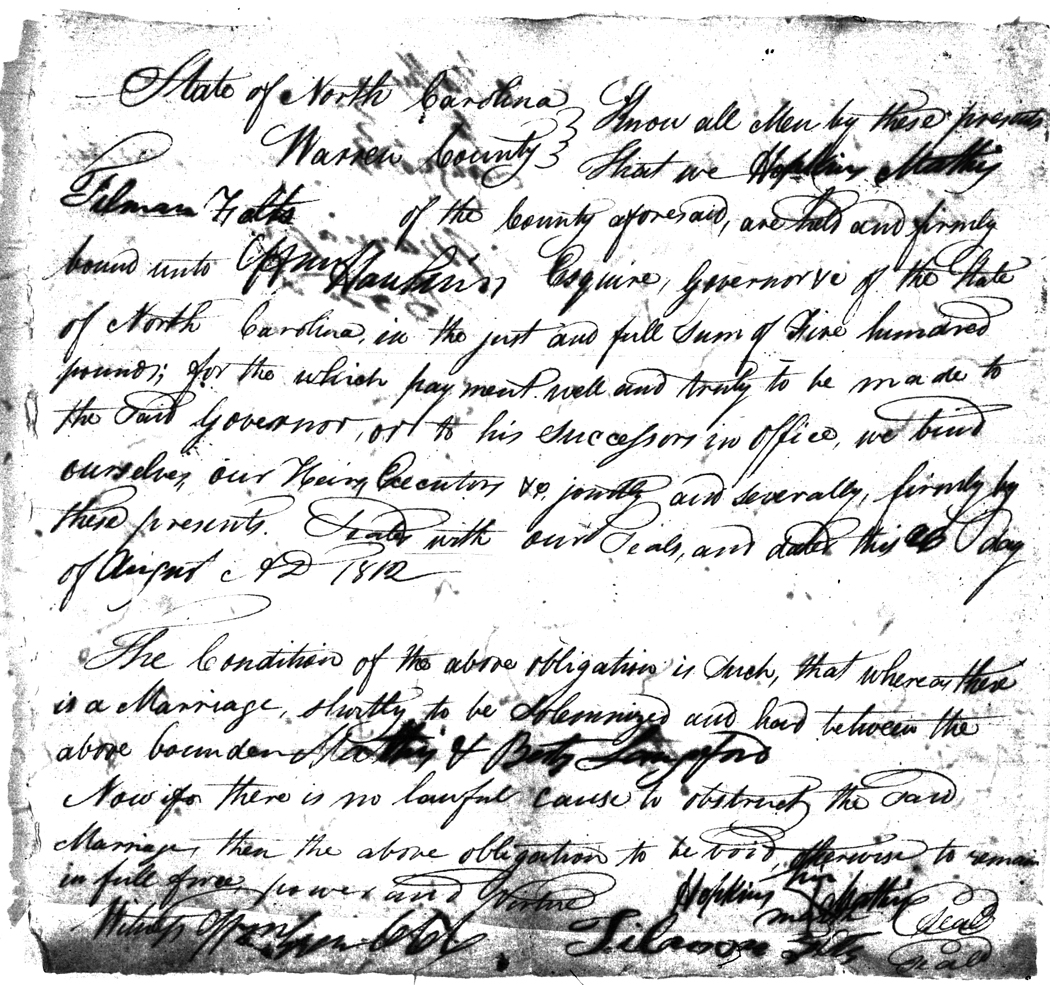 State of North Carolina } Know all Men by these presents
Warren County } that we Hopkins Mathis
Tilman Felts of the County aforesaid, are held and firmly
bound unto Wm Hawkins Esquire, Governor &c of the State
of North Carolina, in the just and full Sum of Five hundred
pounds; for the which payment well and truly to be made to
the Said Governor, or to his Successors in office, we bind
ourselves, our Heirs, Executors &c. jointly and severally, firmly by
these presents. Sealed with our Seals, and dated this day
of August AD 1812
The Condition of the above obligation is Such, that whereas there
is a Marriage, shortly to be Solemnized and had between the
above bounden Mathis & Betsy Langford
Now if there is no lawful cause to obstruct the Said
Marriage, then the above obligation to be void, otherwise to remain
in full force, power and virtue
his
Hopkins Mathis Seal
mark
Witness Wm CWC Tilman Felts Seal